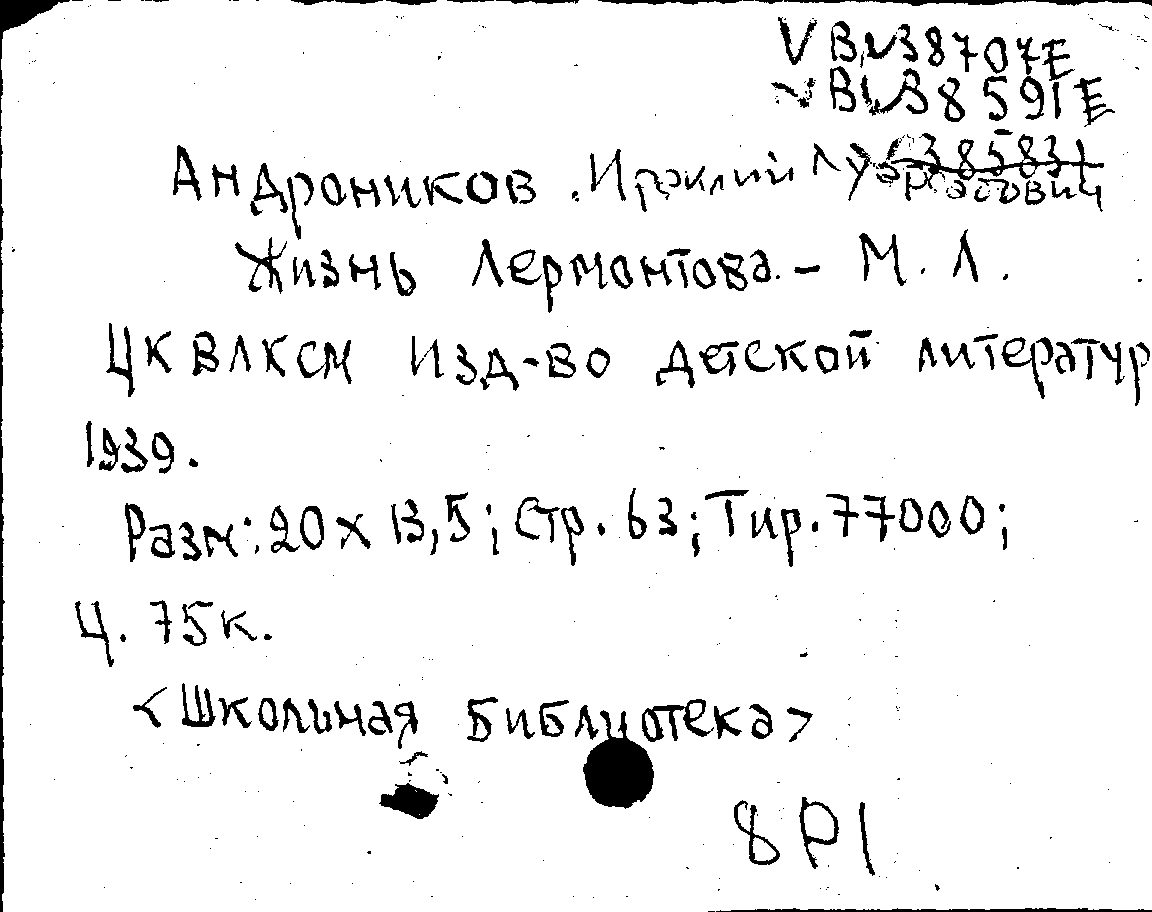 38707E
38591E
385831
Андроников Ираклий
Жизнь Лермонтова. - М. Л.
ЦК ВЛКСМ Изд-во детской литератур
1939.
Разм: 20 x 13,5; Стр. 63; Тир. 77000;
Ц. 75 к.
<Школьная Библиотека>
8Р1